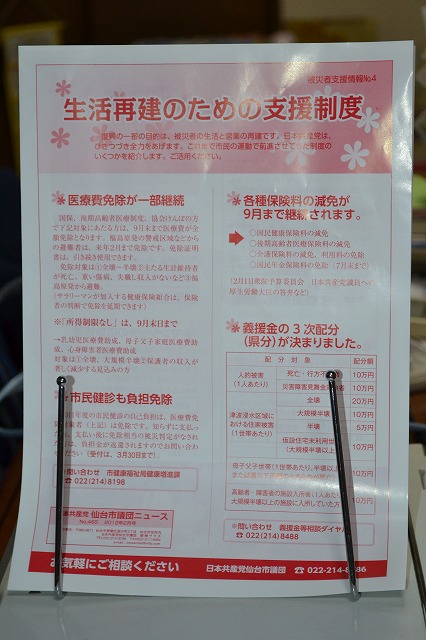 被災者支援情報No4
生活再建のための支援制度
復興の一番の目的は、被災者の生活と営業の再建です。日本共産党は、
ひきつづき全力をあげます。これまで市民の運動で前進させてきた制度
のいくつかを紹介します。ご活用ください。
医療費免除が一部継続
国保、後期高齢者医療制度、協会けんぽの方
で下記対象にあたる方は、9月末まで医療費が全
額免除となります。福島原発の警戒区域などから
の避難者は、来年2月まで免除です。免除証明
書は、引き続き使用できます。
免除対象は①全壊～半壊②主たる生計維持者
が死亡、重い傷病、失職し収入がないなど③福
島原発から避難。
(サラリーマンが加入する健康保険組合は、保険
者の判断で免除を延期できます)
※「所得制限なし」は、9月末日まで
→乳幼児医療費助成、母子父子家庭医療費助
成、心身障害者医療費助成
対象は①全壊、大規模半壊②保護者の収入が
著しく減少する見込みの方
市民健診も負担免除
年度の市民健診の自己負担は、医療費免
除対象者(上記)は免除です。知らずに支払っ
た方、支払い後に免除相当の被災判定がなされ
た方は、負担金が返還されますのでお問い合わ
せください(受付は、3月30日まで)。
問い合わせ 市健康福祉局健康増進課
☎ 022(214)8198
日本共産党 仙台市議団ニュース
No.465 2012年2月号
各種保険料の減免が
9月まで継続されます。
○国民健康保険料の減免
○後期高齢者医療保険料の減免
○介護保険料の減免、利用料の免除
○国民年金保険料の免除(7月末まで)
(2月1日衆院予算委員会 日本共産党議員へ
厚生労働大臣の答弁など)
義援金の3次配分
(県分)が決まりました。
配分対象 配分額
人的被害
(1人あたり)
死亡・行方不 10万円
災害障害見舞金 者 10万円
津波浸水区域に
おける住家被害
(1世帯あたり)
全壊 20万円
大規模半壊 10万円
半壊 5万円
仮設住宅未利用世
(大規模半壊以上 10万円
母子父子世帯(1世帯あたり、半壊以上
10万円
高齢者・障害者の施設入所者(1人あたり
大規模半壊以上の施設に入所していた方 10万円
※問い合わせ 義援金等相談ダイヤル
☎ 022(214)8488
お気軽にご相談ください
日本共産党仙台市議団 ☎ 022-214-8 86